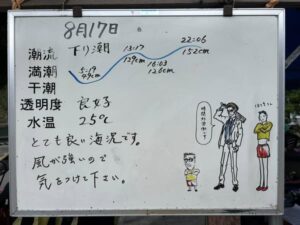 8月17日
潮流 下り潮
満潮
干潮
5:19
49cm
13:17
129cm
16:03
126cm
22:06
152cm
透明度 良好
水温 25℃
とても良い海況です。
風が強いので
気をつけて下さい。